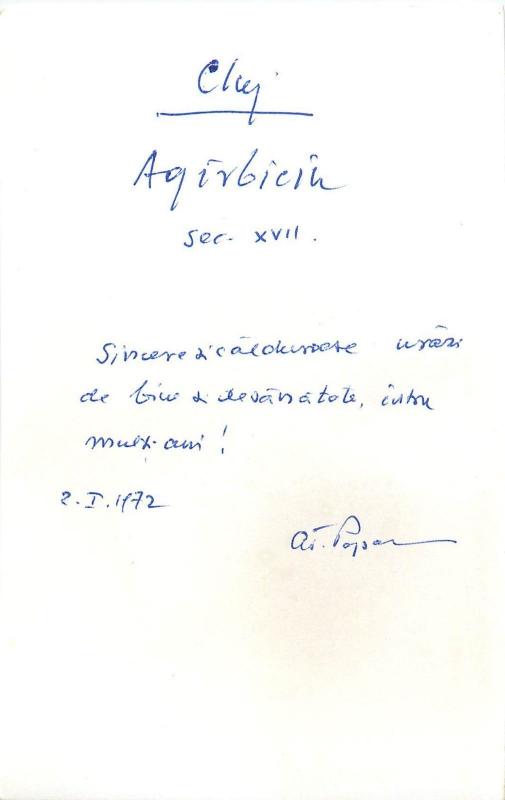 Cluj
Agîrbiciu
sec. XVII.
Sincere și călduroase urări
de bine și de sănătate, întru
mulți ani!
2.I.1972
At. Popa